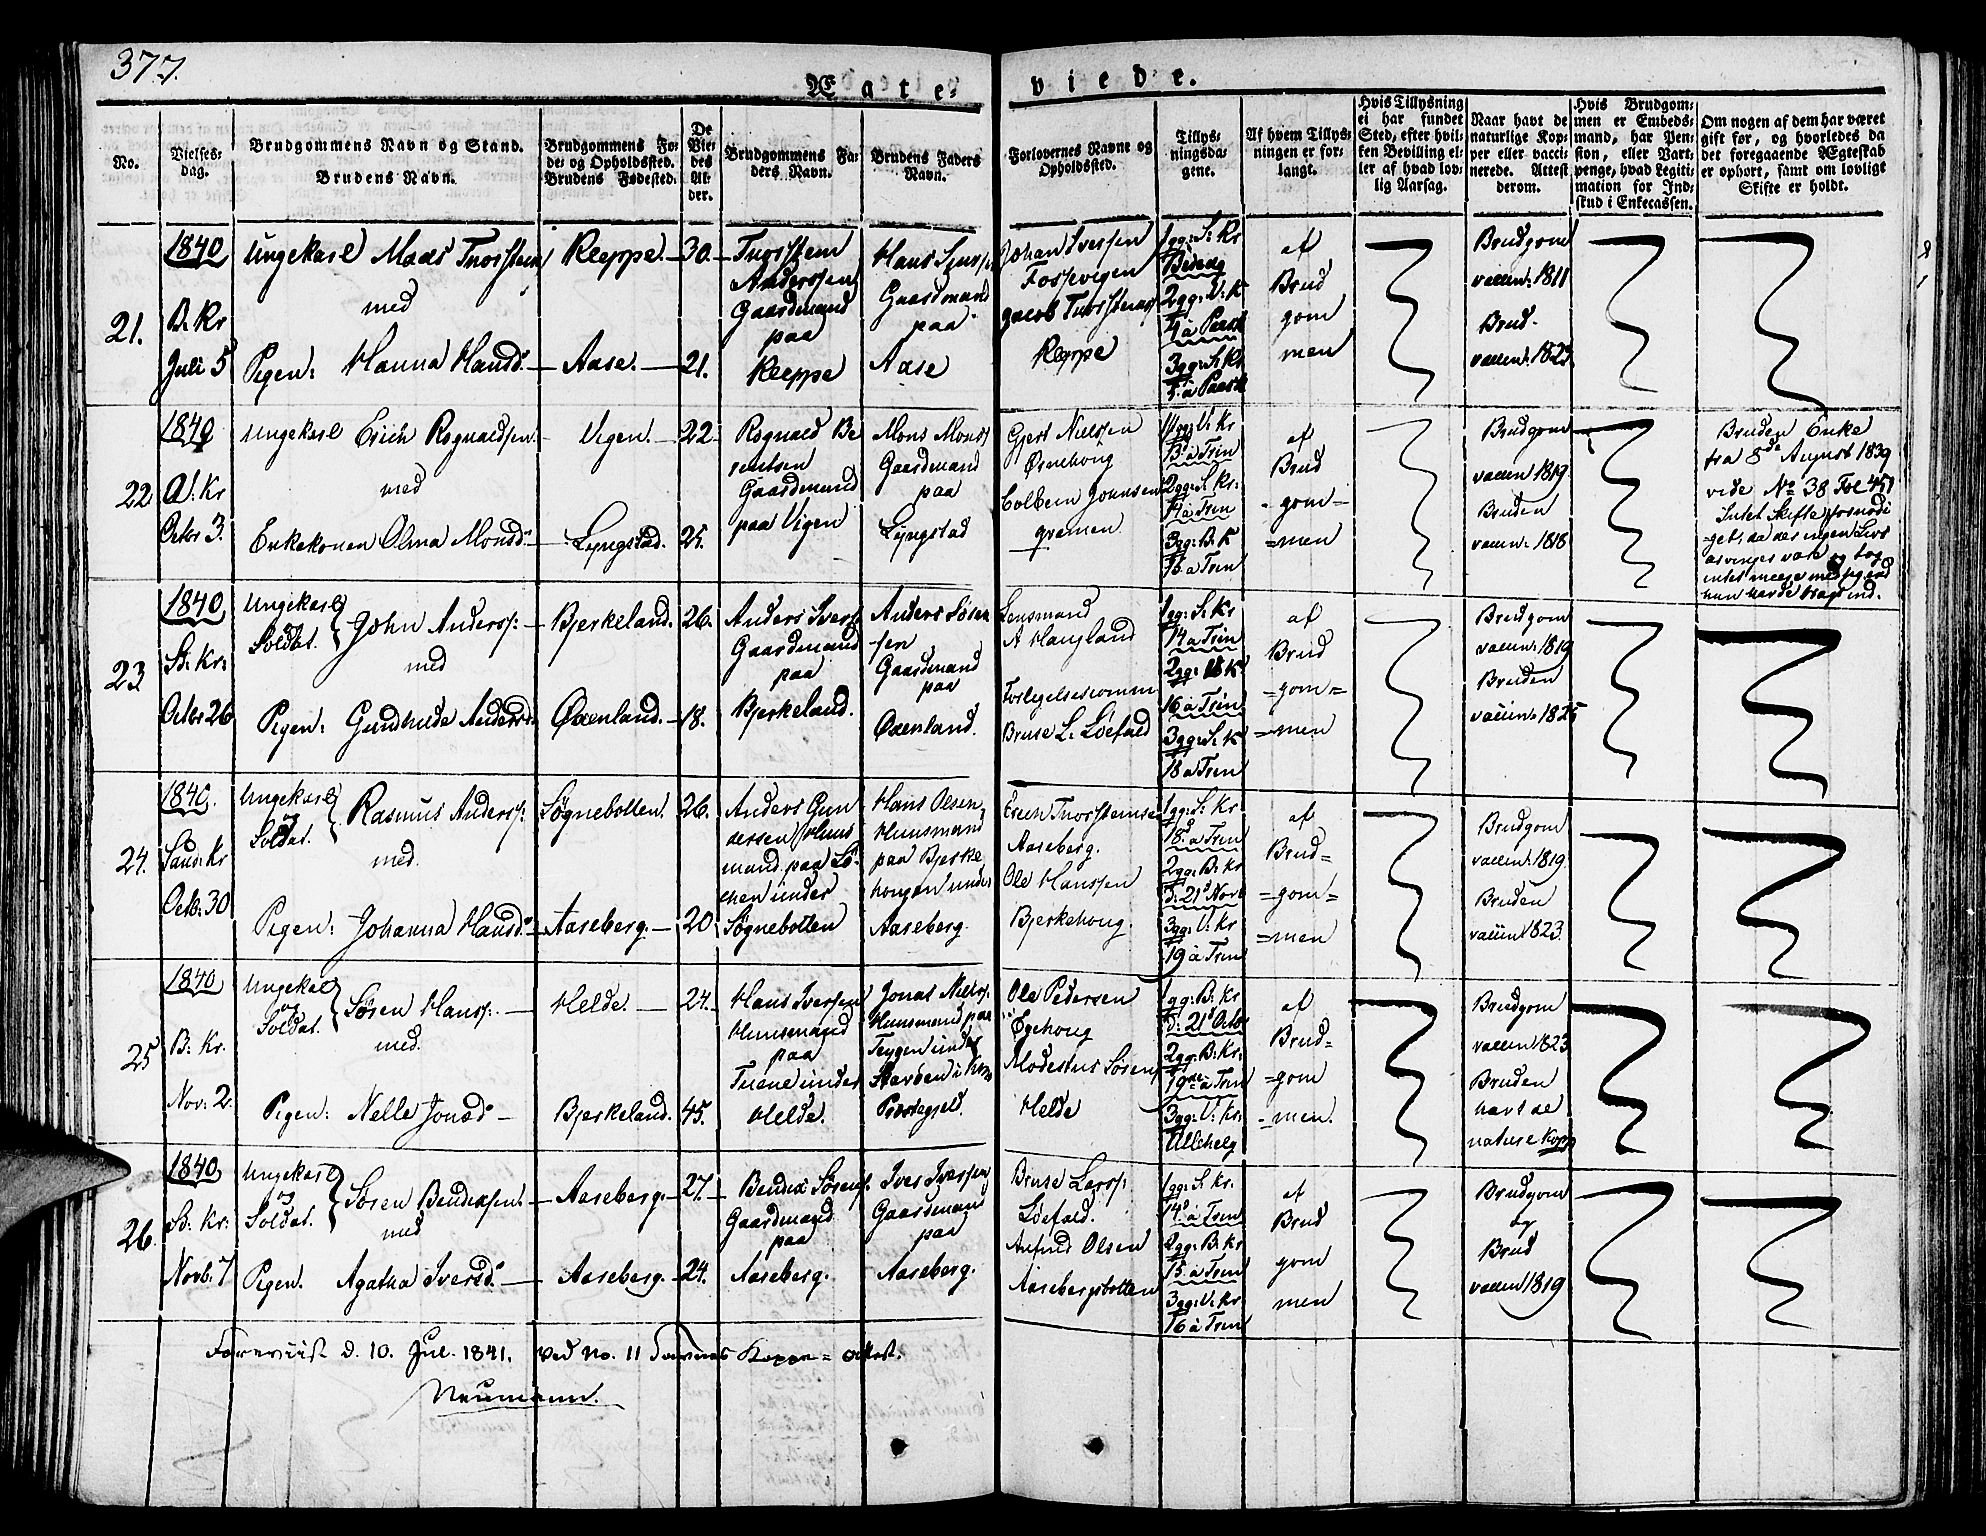 377.
Ægte-
viede.
No.
Vielses-
dag.
Brudgommens Navn og Stand.
Brudens Navn.
Brudgommens Fø-
de- og Opholdssted.
Brudens Fødested.
De
Vie-
des
Al-
der.
Brudgommens Fa-
ders Navn.
Brudens Faders
Navn.
Forlovernes Navne og
Opholdssted.
Tillys-
ningsda-
gene.
Af hvem Tillys-
ningen er for-
langt.
Hvis Tillysning
ei har fundet
Sted, efter hvil-
ken Bevilling el-
ler af hvad lov-
lig Aarsag.
Naar havt de
naturlige Kop-
per eller vacci-
nerede. Attest
derom.
Hvis Brudgom-
men er Embeds-
mand, har Pen-
sion, eller Vart-
penge, hvad Legiti-
mation for Ind-
skud i Enkecassen.
Om nogen af dem har været
gift før, og hvorledes da
det foregaaende Ægteskab
er ophørt, samt om lovligt
Skifte er holdt.
21.
1840
B: Kr
Juli 5
Ungekarl Mads Thorstens
med
Pigen: Hanna Hansd:
Reppe
Aase.
30
21.
Thorsten
Anderssen
Gaardmand
paa
Reppe
Hans
Gaardmand
paa
Aase
Johan Iverssen
Fossevigen
Jacob Thorstens
Reppe
1gg: S: Kr
2gg: V: K
4 a Paask
3gg: S: Kr
5 a Paask
af
Brud
gom
men
Brudgom
vaccin: 1811
Brud.
vaccin: 1823
22
1840
Ol: Kr
Octbr 3.
Ungekarl Erich Rognaldsen
med
Enkekonen Olina Monsd:
Vigen.
Lyngstad.
22
25.
Rognald Be
rentsen
Gaardmand
paa Vigen
Mons Mons
Gaardmand
paa
Lyngstad
Gjert Nielsen
Ørnehoug
Colbein Johnsen
qvamen
V: Kr
13 a Trin
2gg: S: Kr:
14 a Trin
3gg: B: K
16 a Trin
af
Brud
-gom-
=men
Brudgom
vaccin 1819
Bruden
vaccin: 1818
Bruden Enke
fra 8de August 1839
vide No 38 Fol 451
Intet Skifte fornødi
get, da der ingen Livs
arvinger var og tog
intet meere med sig end
hun havde bragt ind.
23
1840
St: Kr:
Octbr 26
Ungekarl
og
Soldat. John Anderss:
med
Pigen: Gundhilde Andersd:
Bjerkeland.
Øxenland.
26.
18.
Anders Ivers
Gaardmand
paa
Bjerkeland.
Anders Søren
sen
Gaardmand
paa
Øxenland.
Lensmand
A Haugland
Forligelsescomm
Bruse L. Løefald
1gg: S: Kr
14 a Trin
2gg: V: K
16 a Trin
3gg: S: K
18 a Trin
af
Brud
=gom=
=men
Brudgom
vaccin: 1819
Bruden
vaccin: 1825
24.
1840.
Sand: Kr
Octb: 30
Ungekarl
og
Soldat. Rasmus Anderss:
med.
Pigen: Johanna Hansd:
Søgnebotten.
Aaseberg.
26.
20
Anders Gun
dersen Huus
mand paa
under
Søgnebotten
Hans Olsen
Huusmand
paa Bjerke
hougen under
Aaseberg.
Erich Thorstensen
Aaseberg.
Ole Hanssen
Bjerkehoug.
1gg: S: Kr
18 a Trin
2gg: B: Kr
d: 21d Novb
3gg: V: Kr
19 a Trin
af
Brud=
=gom=
=men
Brudgom
vaccin: 1819
Bruden
vaccin 1823.
25
1840
B: Kr.
Nov: 2.
Ungekarl
og
Soldat. Søren Hanss:
med.
Pigen: Nelle Jonasd
Helde.
Bjerkeland.
24.
45.
Hans Iversen
Huusmand
paa
under
Helde.
Jonas Niels:
Huusmand paa
Teygen under
Præstegjeld.
Ole Pedersen
Egehoug
Modestus Sørens
Helde
1gg: B: Kr
d: 21d Octbr
2gg: B: Kr:
19de a Trin
3gg: V: Kr:
Allehelg
af
Brud=
=gom
-men.
Brudgom
vaccin 1823
Bruden
havt de
naturl Kopp
26.
1840
St: Kr:
Novb: 7
Ungekarl
og
Soldat. Søren Bendixsen
med
Pigen. Agatha Iversd:
Aaseberg.
Aaseberg.
27.
24.
Bendix Sørens
Gaardmand
paa
Aaseberg.
Iver Iverssen
Gaardmand
paa
Aaseberg.
Bruse Larss:
Løefald.
Anfind Olsen
Aasebergsbotten
1gg: S: Kr.
14 a Trin
2gg: B: Kr
15 a Trin
3gg: V: Kr
16 a Trin
af
Brud
gom
men
Brudgom
og
Brud
vaccin 1819
Foreviist d. 10. Jul. 1841. ved No. 11
Neumann.